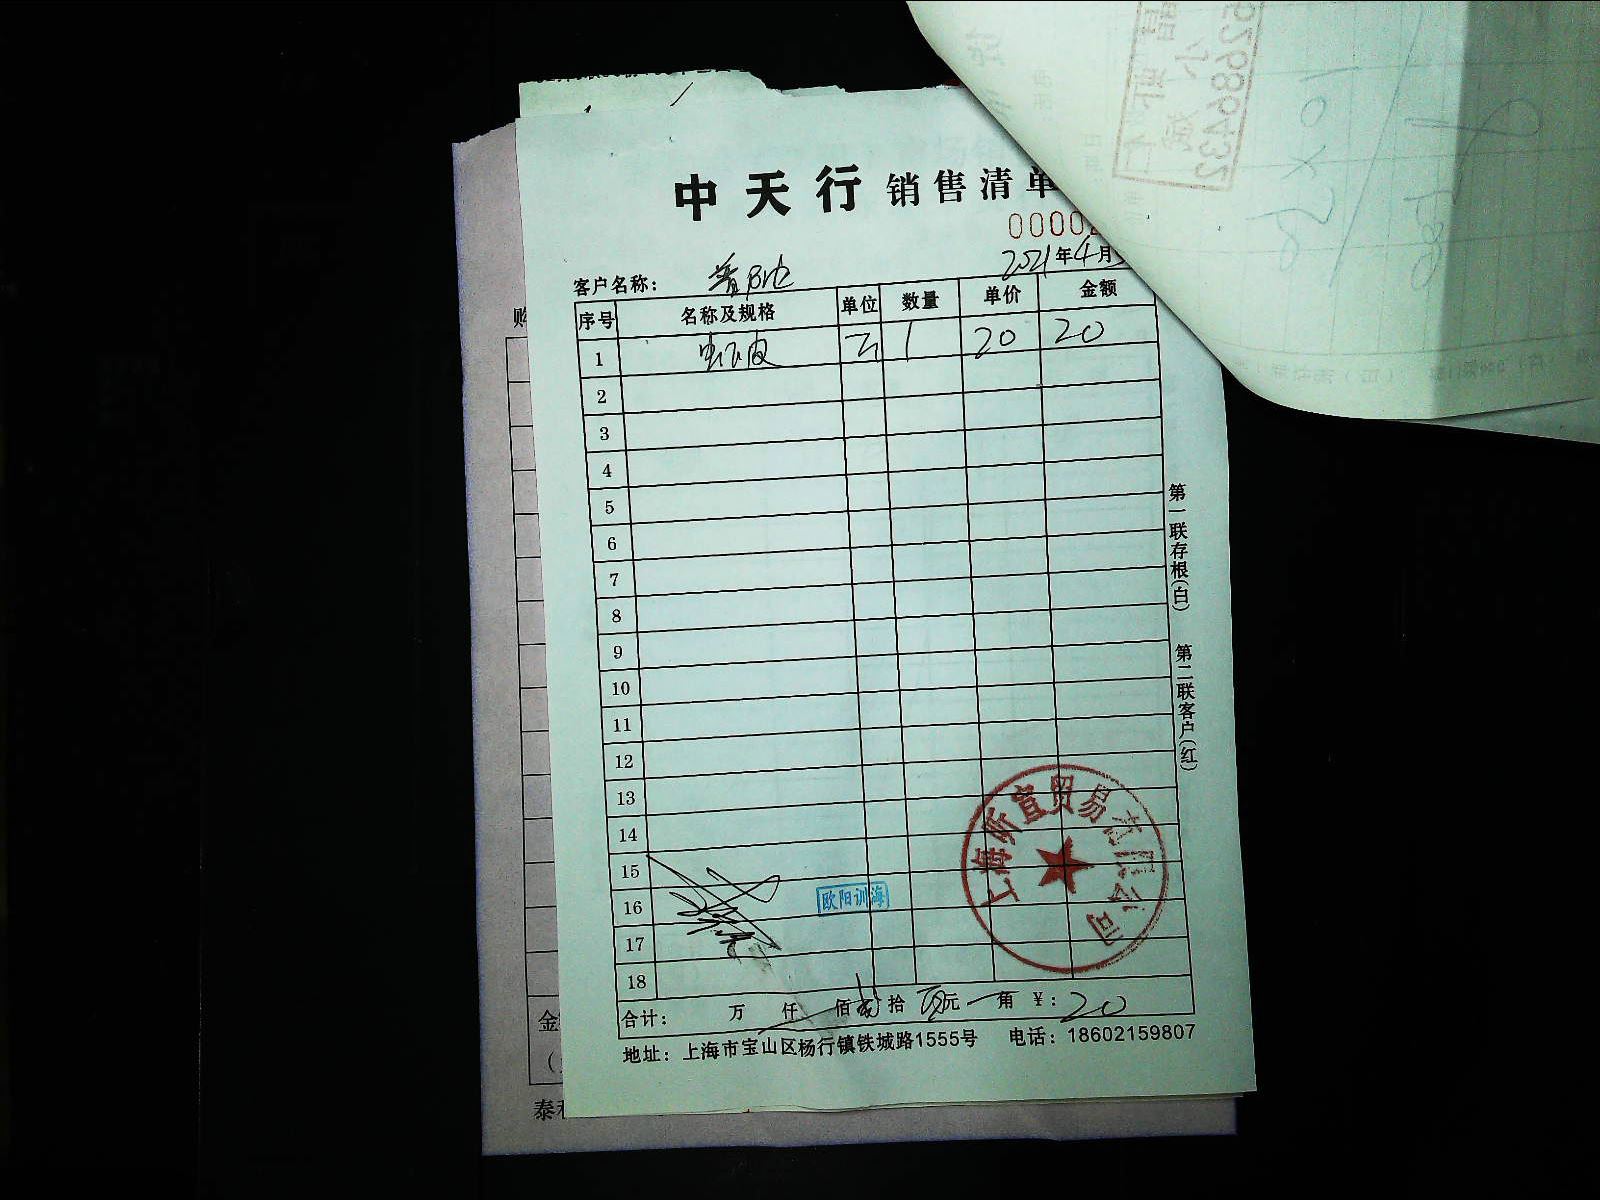 中天行 销售清单
0000
2021年4月
客户名称：
序号 名称及规格 单位 数量 单价 金额
1 虾皮 斤 1 20 20
2
3
4
5
6
7
8
9
10
11
12
13
14
15
16
17
18
欧阳训海
上海昕宜贸易有限公司
合计： 万 仟 佰 贰拾 元 角 ￥：20
地址：上海市宝山区杨行镇铁城路1555号 电话：18602159807
第一联存根(白) 第二联客户(红)
购
金
泰